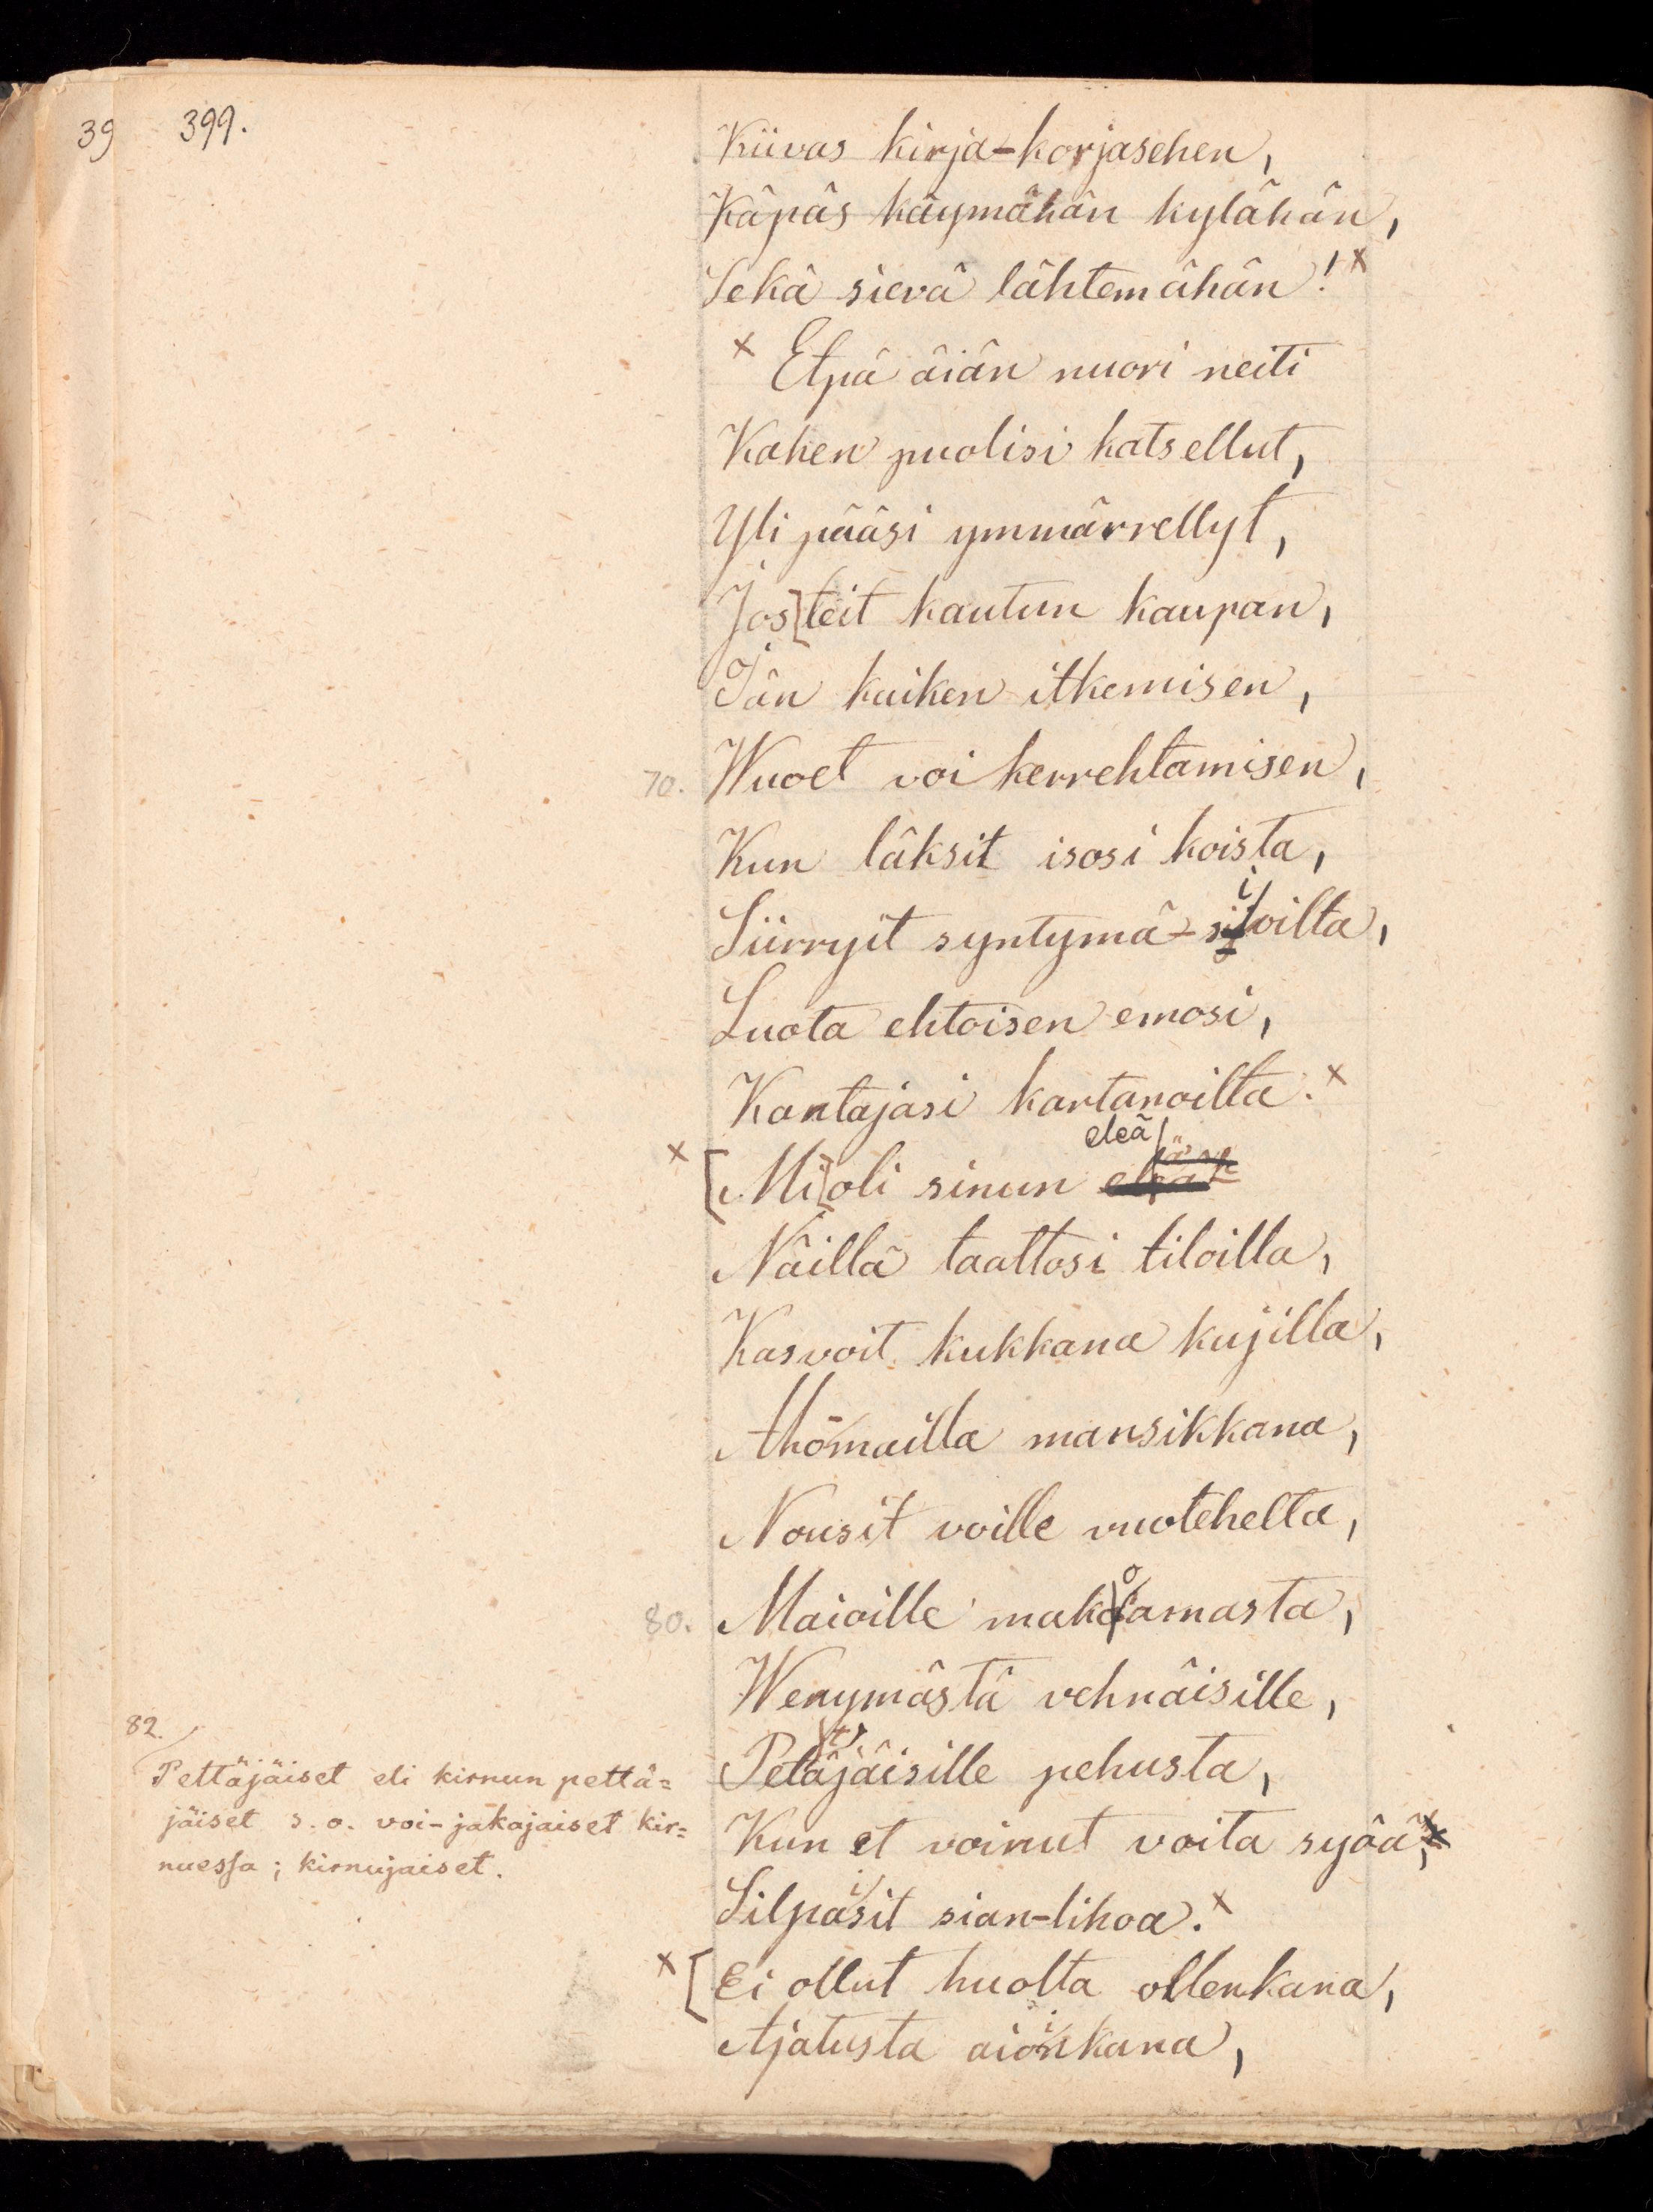 39
399.
Kiivas kirja-korjasehen,
Käpäs käymähän kylähän,
Sekä sievä lähtemähän! x
x Etpä äiän nuori neiti
Kahen puolisi katsellut,
Yli pääsi ymmärrellyt,
Jos [teit kautun kaupan,
Iän kaiken itkemisen,
70. Wuoet voikerrehtamisen,
Kun läksit isosi koista,
i
Siirryit syntymä-siloilta,
Luota ehtoisen emosi,
Kantajasi kartanoilta. x
eleä
x [Mi] oli sinun eleä
Näillä taattosi tiloilla,
Kasvoit kukkana kujilla,
Ahomailla mansikkana,
Nousit voille vuotehelta,
o
80. Maioille makoamasta,
Wenymästä vehnäisille,
t
Petäjäisille pehusta,
Kun et voinut voita syöä, x
i
Silpasit sian-lihoa. x
x [Ei ollut huolta ollenkana,
i
Ajatusta aionkana,
82.
Pettäjäiset eli kirnun pettä=
jäiset s.o. voi-jakajaiset kir=
nuessa; kirnujaiset.